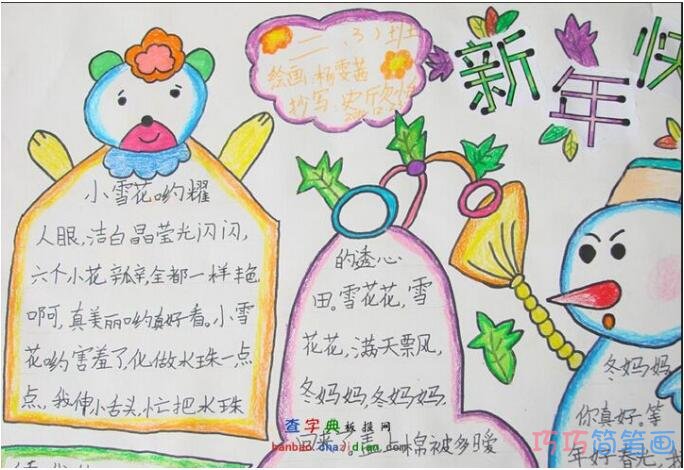 二(3)班
绘画:杨雯茜
抄写:史欣怡
新年快
小雪花哟耀
人眼,洁白晶莹光闪闪,
六个小花新辛,全都一样丰色
啊可,真美丽哟真好看。小雪
花哟害羞了,化做水珠一点
点,我伸小舌头,忙把水珠
的透心
田。雪花花,雪
花花,满天票风,
冬妈妈,冬妈妈,
冬妈妈
你真好。等
查字典板报网
hanbao.chazidian.com
巧巧简笔画